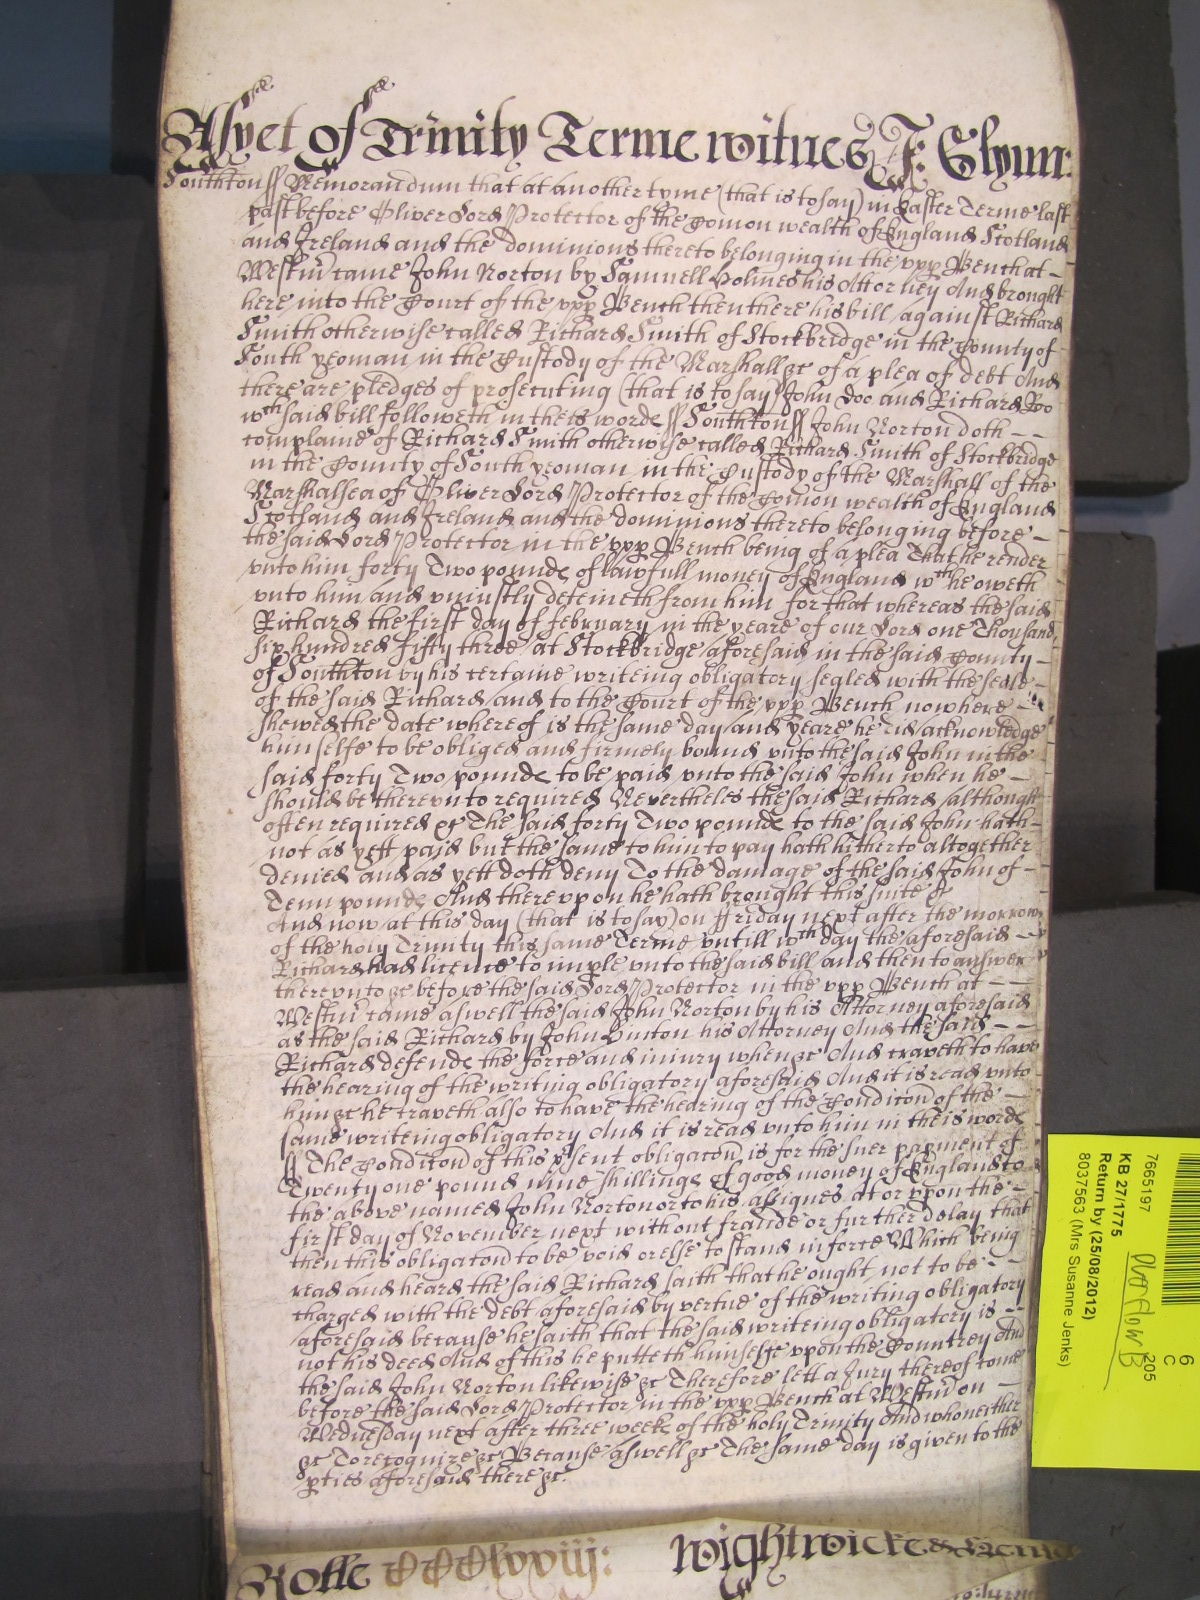 As yet of Trinity Terme witnes J: Glynn:
Southton ss Memorandum that at another tyme (that is to say) in Easter Terme last
past before Oliver Lord Protector of the Comon wealth of England Scotland
and Ireland and the dominions thereto belonging in the upp Bench at
Westm came John Norton by Samuell Holmes his Attorney And brought
here into the Court of the upp Bench then there his bill against Richard
Smith otherwise called Richard Smith of Stockbridge in the County of
South yeoman in the Custody of the Marshall &c of a plea of debt And
there are pledges of prosecuting (that is to say) John Doo and Richard Roo
wch said bill followeth in theis words ss Southton ss John Norton doth
complaine of Richard Smith otherwise called Richard Smith of Stockbridge
in the County of South yeoman in the Custody of the Marshall of the
Marshalsea of Oliver Lord Protector of the Comon wealth of England
Scotland and Ireland and the dominions thereto belonging before
the said Lord Protector in the upp Bench being of a plea That he render
unto him forty Two pounds of lawfull money of England wch he oweth
unto him and uniustly deteineth from him for that whereas the said
Richard the first day of february in the yeare of our Lord one Thousand
six hundred fifty three at Stockbridge aforesaid in the said County
of Southton by his certaine writeing obligatory sealed with the seale
of the said Richard and to the Court of the upp Bench now here
shewed the date whereof is the same day and yeare he did acknowledge
himselfe to be obliged and firmely bound unto the said John in the
said forty Two pounds to be paid unto the said John when he
should be thereunto required Nevertheles the said Richard although
often required &c The said forty Two pounds to the said John hath
not as yett paid but the same to him to pay hath hitherto altogether
denied and as yett doth deny To the damage of the said John of
Tenn pounds And thereupon he hath brought this suite &c
And now at this day (that is to say) on ffriday next after the morrow
of the holy Trinity this same Terme untill wch day the aforesaid
Richard had licence to imple unto the said bill and then to answer
thereunto &c before the said Lord Protector in the upp Bench at
Westm came aswell the said John Norton by his Attorney aforesaid
as the said Richard by John Hinton his Attorney And the said
Richard defends the force and iniury when &c And craveth to have
the hearing of the writing obligatory aforesaid And it is read unto
him &c he craveth also to have the hearing of the Conditon of the
same writeing obligatory And it is read unto him in theis words
ss The Conditon of this psent obligaton is for the suer payment of
Twenty one pounds nine shillings of good money of England to
the above named John Norton or to his assignes at or upon the
first day of November next without fraude or further delay that
then this obligaton to be void or else to stand in force Which being
read and heard the said Richard saith that he ought not to be
charged with the debt aforesaid by vertue of the writing obligatory
aforesaid because he saith that the said writeing obligatory is
not his deed And of this he putteth himselfe upon the Countrey And
the said John Norton likewise &c Therefore lett a Jury thereof come
before the said Lord Protector in the upp Bench at Westm on
Wednesday next after three weeks of the holy Trinity And who neither
&c To recognize &c Because aswell &c The same day is given to the
pties aforesaid there &c.
Rolle CCClxxiij: Wightwicke &
7665197
KB 27/1775
Return by (25/08/2012)
8037563 (Mrs Susanne Jenks)
205
6
C